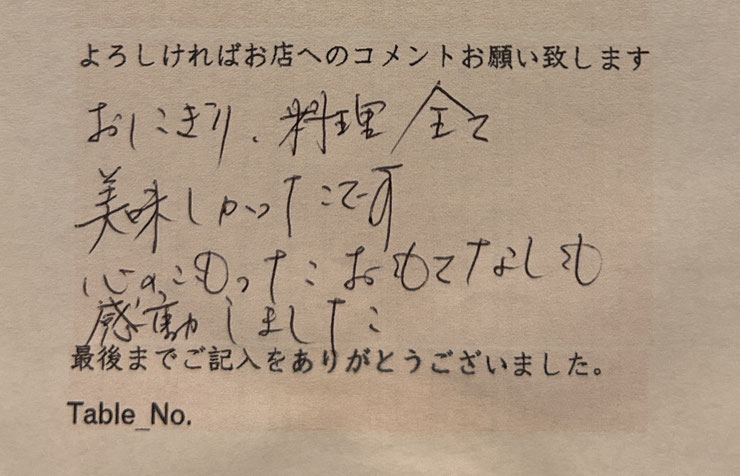 よろしければお店へのコメントお願い致します
おにぎり、料理全て
美味しかったです
心のこもったおもてなしも
感動しました
最後までご記入をありがとうございました。
Table_No.